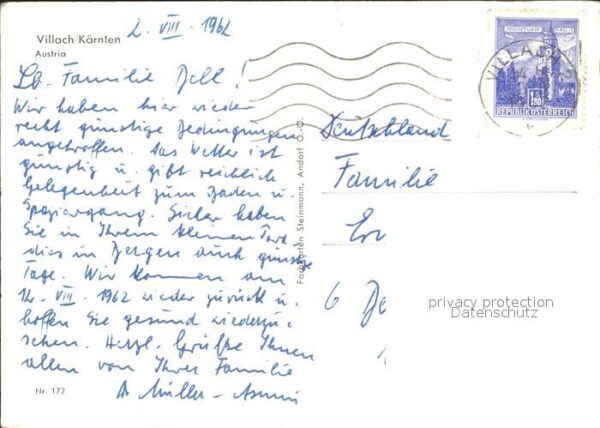 2. VIII. 1962
Villach/Kärnten
Austria
Lb. Familie Dell!
Wir haben hier wieder
recht günstige Bedingungen
angetroffen. Das Wetter ist
günstig u. gibt reichlich
Gelegenheit zum Baden u.
Spaziergang. Sicher haben
Sie in Ihrem kleinen
dies in Bergen auch günstige
Tage. Wir kommen am
VIII. 1962 wieder zurück u.
hoffen Sie gesund wiederzu-
sehen. Herzl. Grüße Ihnen
allen von Ihrer Familie
Müller-
Nr. 172
Fachgarten Steinmann, Andorf O.-Ö.
S S
REPUBLIK ÖSTERREICH
VILLACH 2
Deutschland
Familie
Er
6
privacy protection
Datenschutz